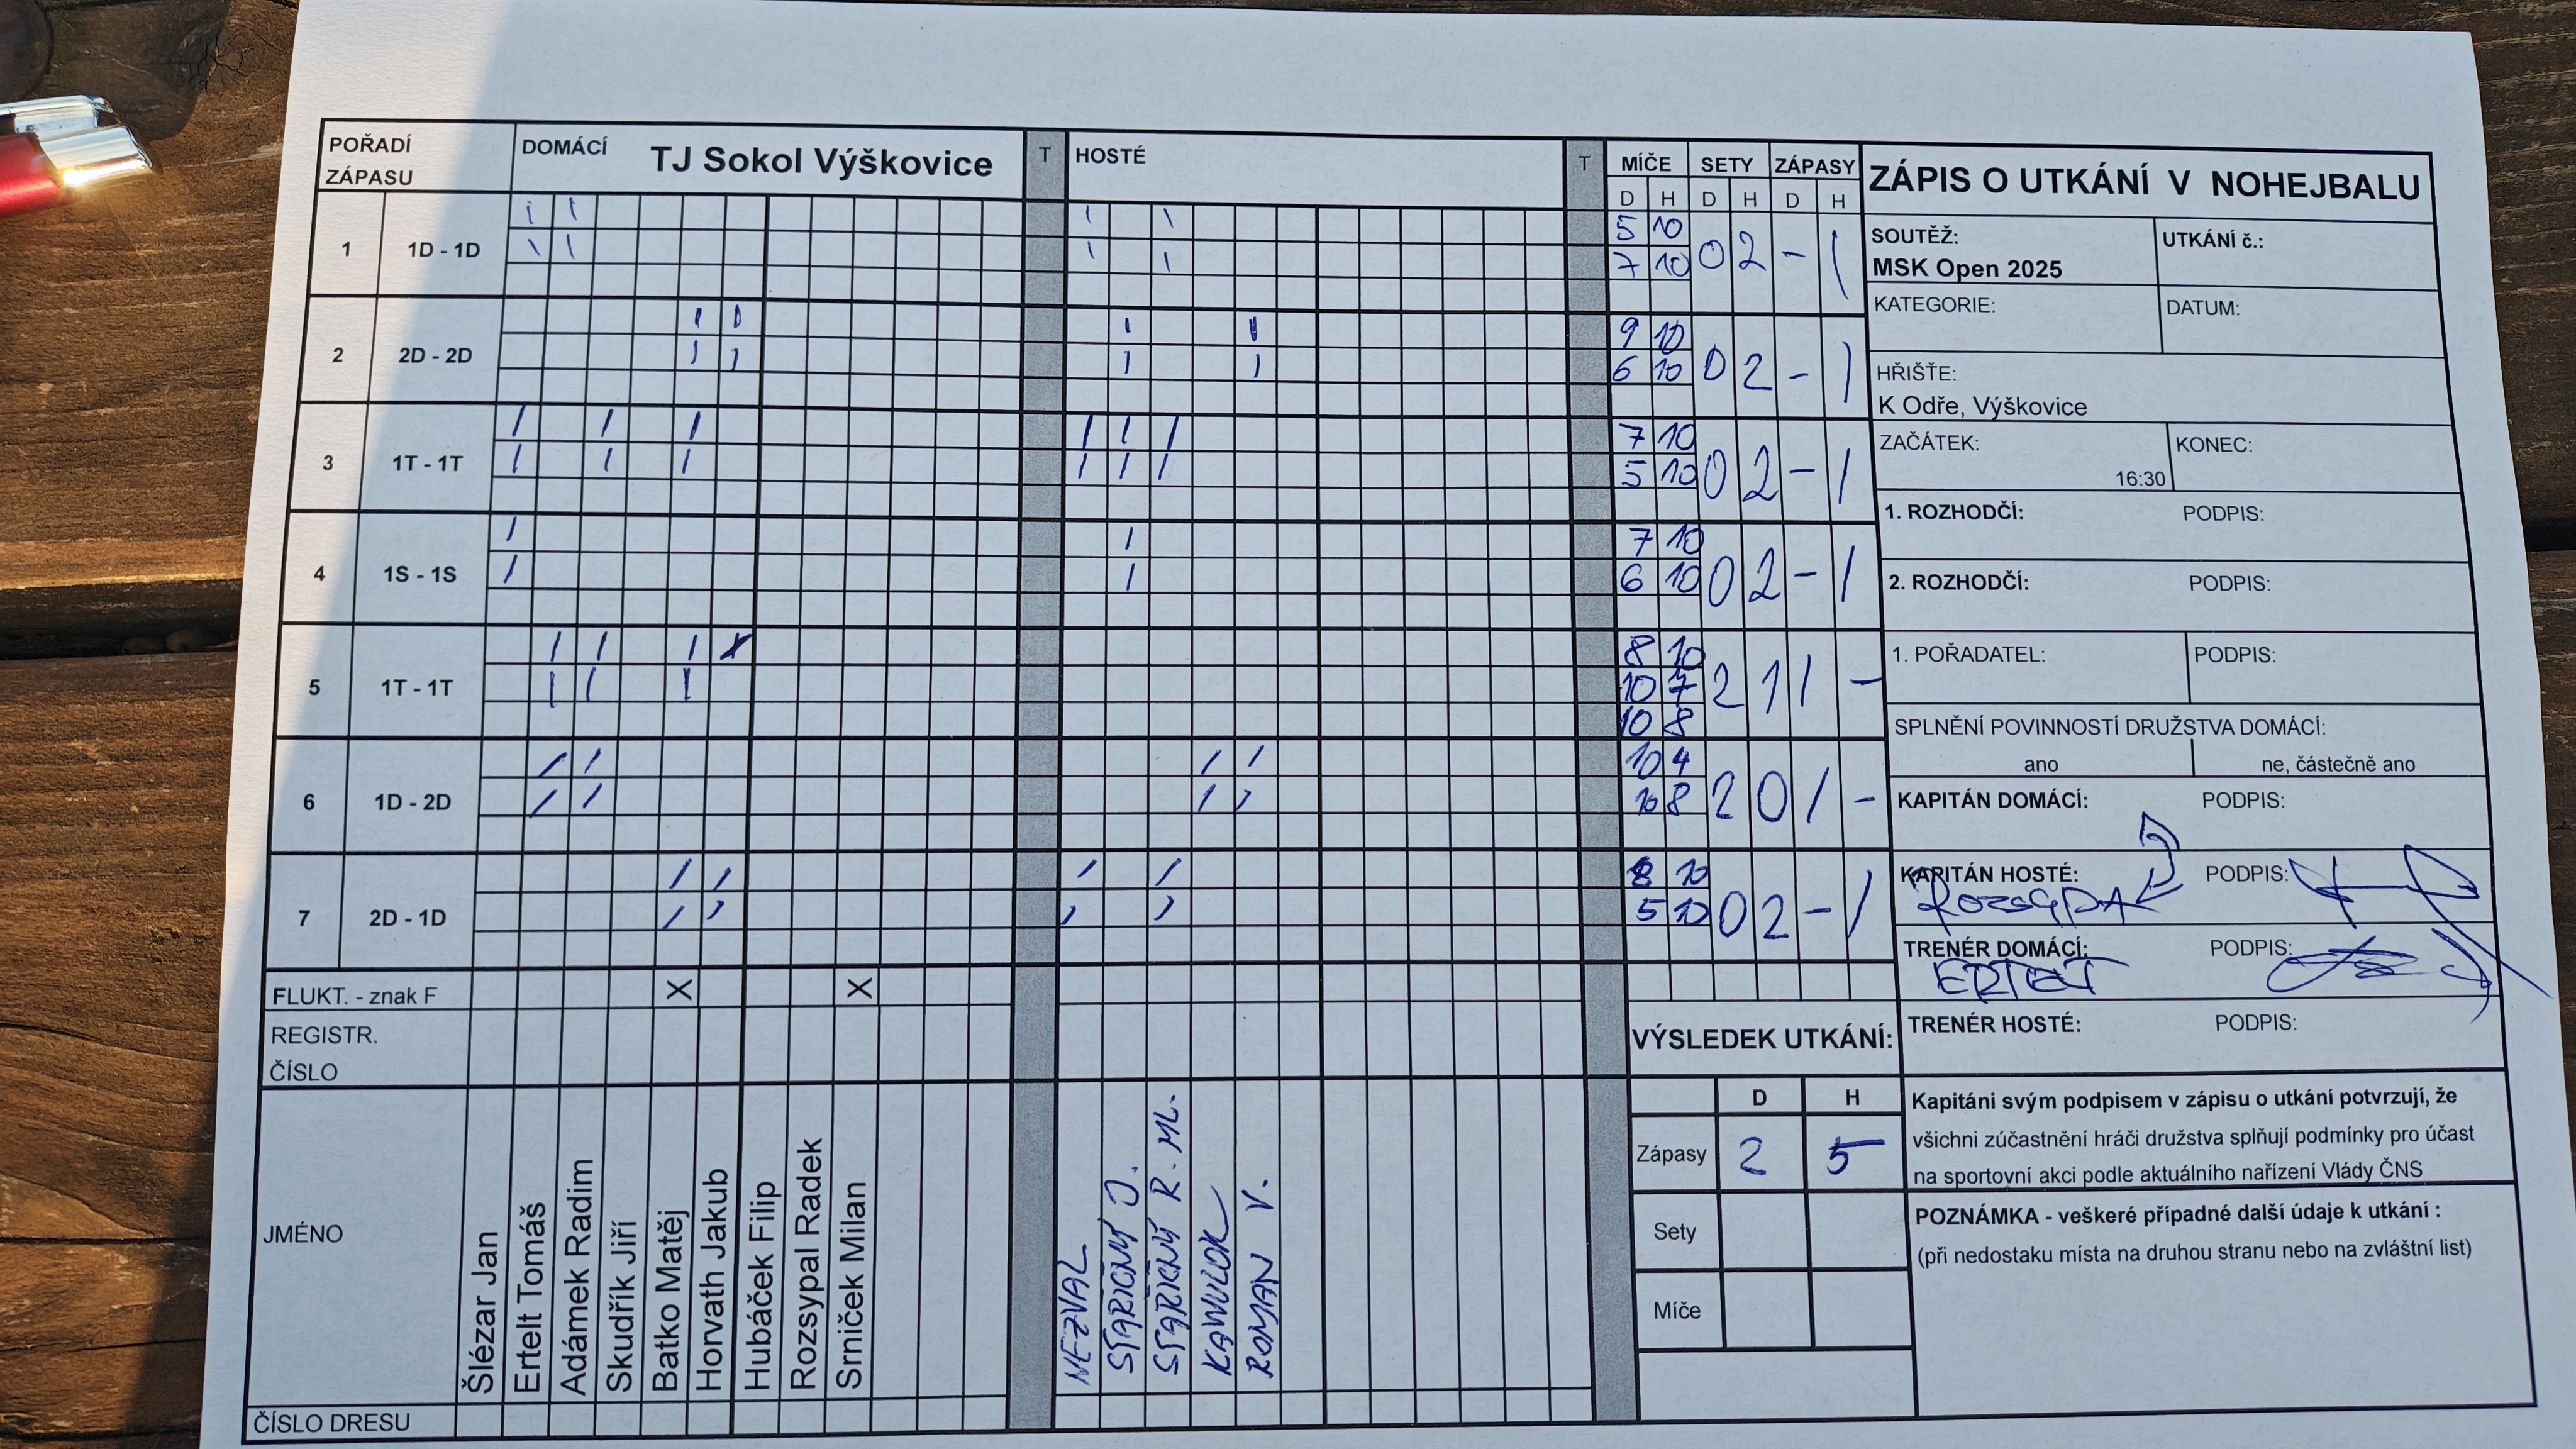 POŘADÍ ZÁPASU
DOMÁCÍ TJ Sokol Výškovice
T
HOSTÉ
T
MÍČE SETY ZÁPASY
D H D H D H
1 1D - 1D
5 10
7 10
0 2 - 1
2 2D - 2D
9 10
6 10
0 2 - 1
3 1T - 1T
7 10
5 10
0 2 - 1
4 1S - 1S
7 10
6 10
0 2 - 1
5 1T - 1T
8 10
10 7
10 8
2 1 1 -
6 1D - 2D
10 4
10 8
2 0 1 -
7 2D - 1D
8 10
5 10
0 2 - 1
FLUKT. - znak F X X
REGISTR.
ČÍSLO
JMÉNO
Šlézar Jan
Ertelt Tomáš
Adámek Radim
Skudřík Jiří
Batko Matěj
Horvath Jakub
Hubáček Filip
Rozsypal Radek
Srniček Milan
NEZVAL
STARIČNÝ J.
STARIČNÝ R. ML.
KAWULOK
ROMAN V.
ČÍSLO DRESU
VÝSLEDEK UTKÁNÍ:
D H
Zápasy 2 5
Sety
Míče
ZÁPIS O UTKÁNÍ V NOHEJBALU
SOUTĚŽ: UTKÁNÍ č.:
MSK Open 2025
KATEGORIE: DATUM:
HŘIŠTĚ:
K Odře, Výškovice
ZAČÁTEK: KONEC:
16:30
1. ROZHODČÍ: PODPIS:
2. ROZHODČÍ: PODPIS:
1. POŘADATEL: PODPIS:
SPLNĚNÍ POVINNOSTÍ DRUŽSTVA DOMÁCÍ:
ano ne, částečně ano
KAPITÁN DOMÁCÍ: PODPIS:
KAPITÁN HOSTÉ: PODPIS:
TRENÉR DOMÁCÍ: PODPIS:
ERTELT
TRENÉR HOSTÉ: PODPIS:
Kapitáni svým podpisem v zápisu o utkání potvrzují, že
všichni zúčastnění hráči družstva splňují podmínky pro účast
na sportovní akci podle aktuálního nařízení Vlády ČNS
POZNÁMKA - veškeré případné další údaje k utkání :
(při nedostaku místa na druhou stranu nebo na zvláštní list)